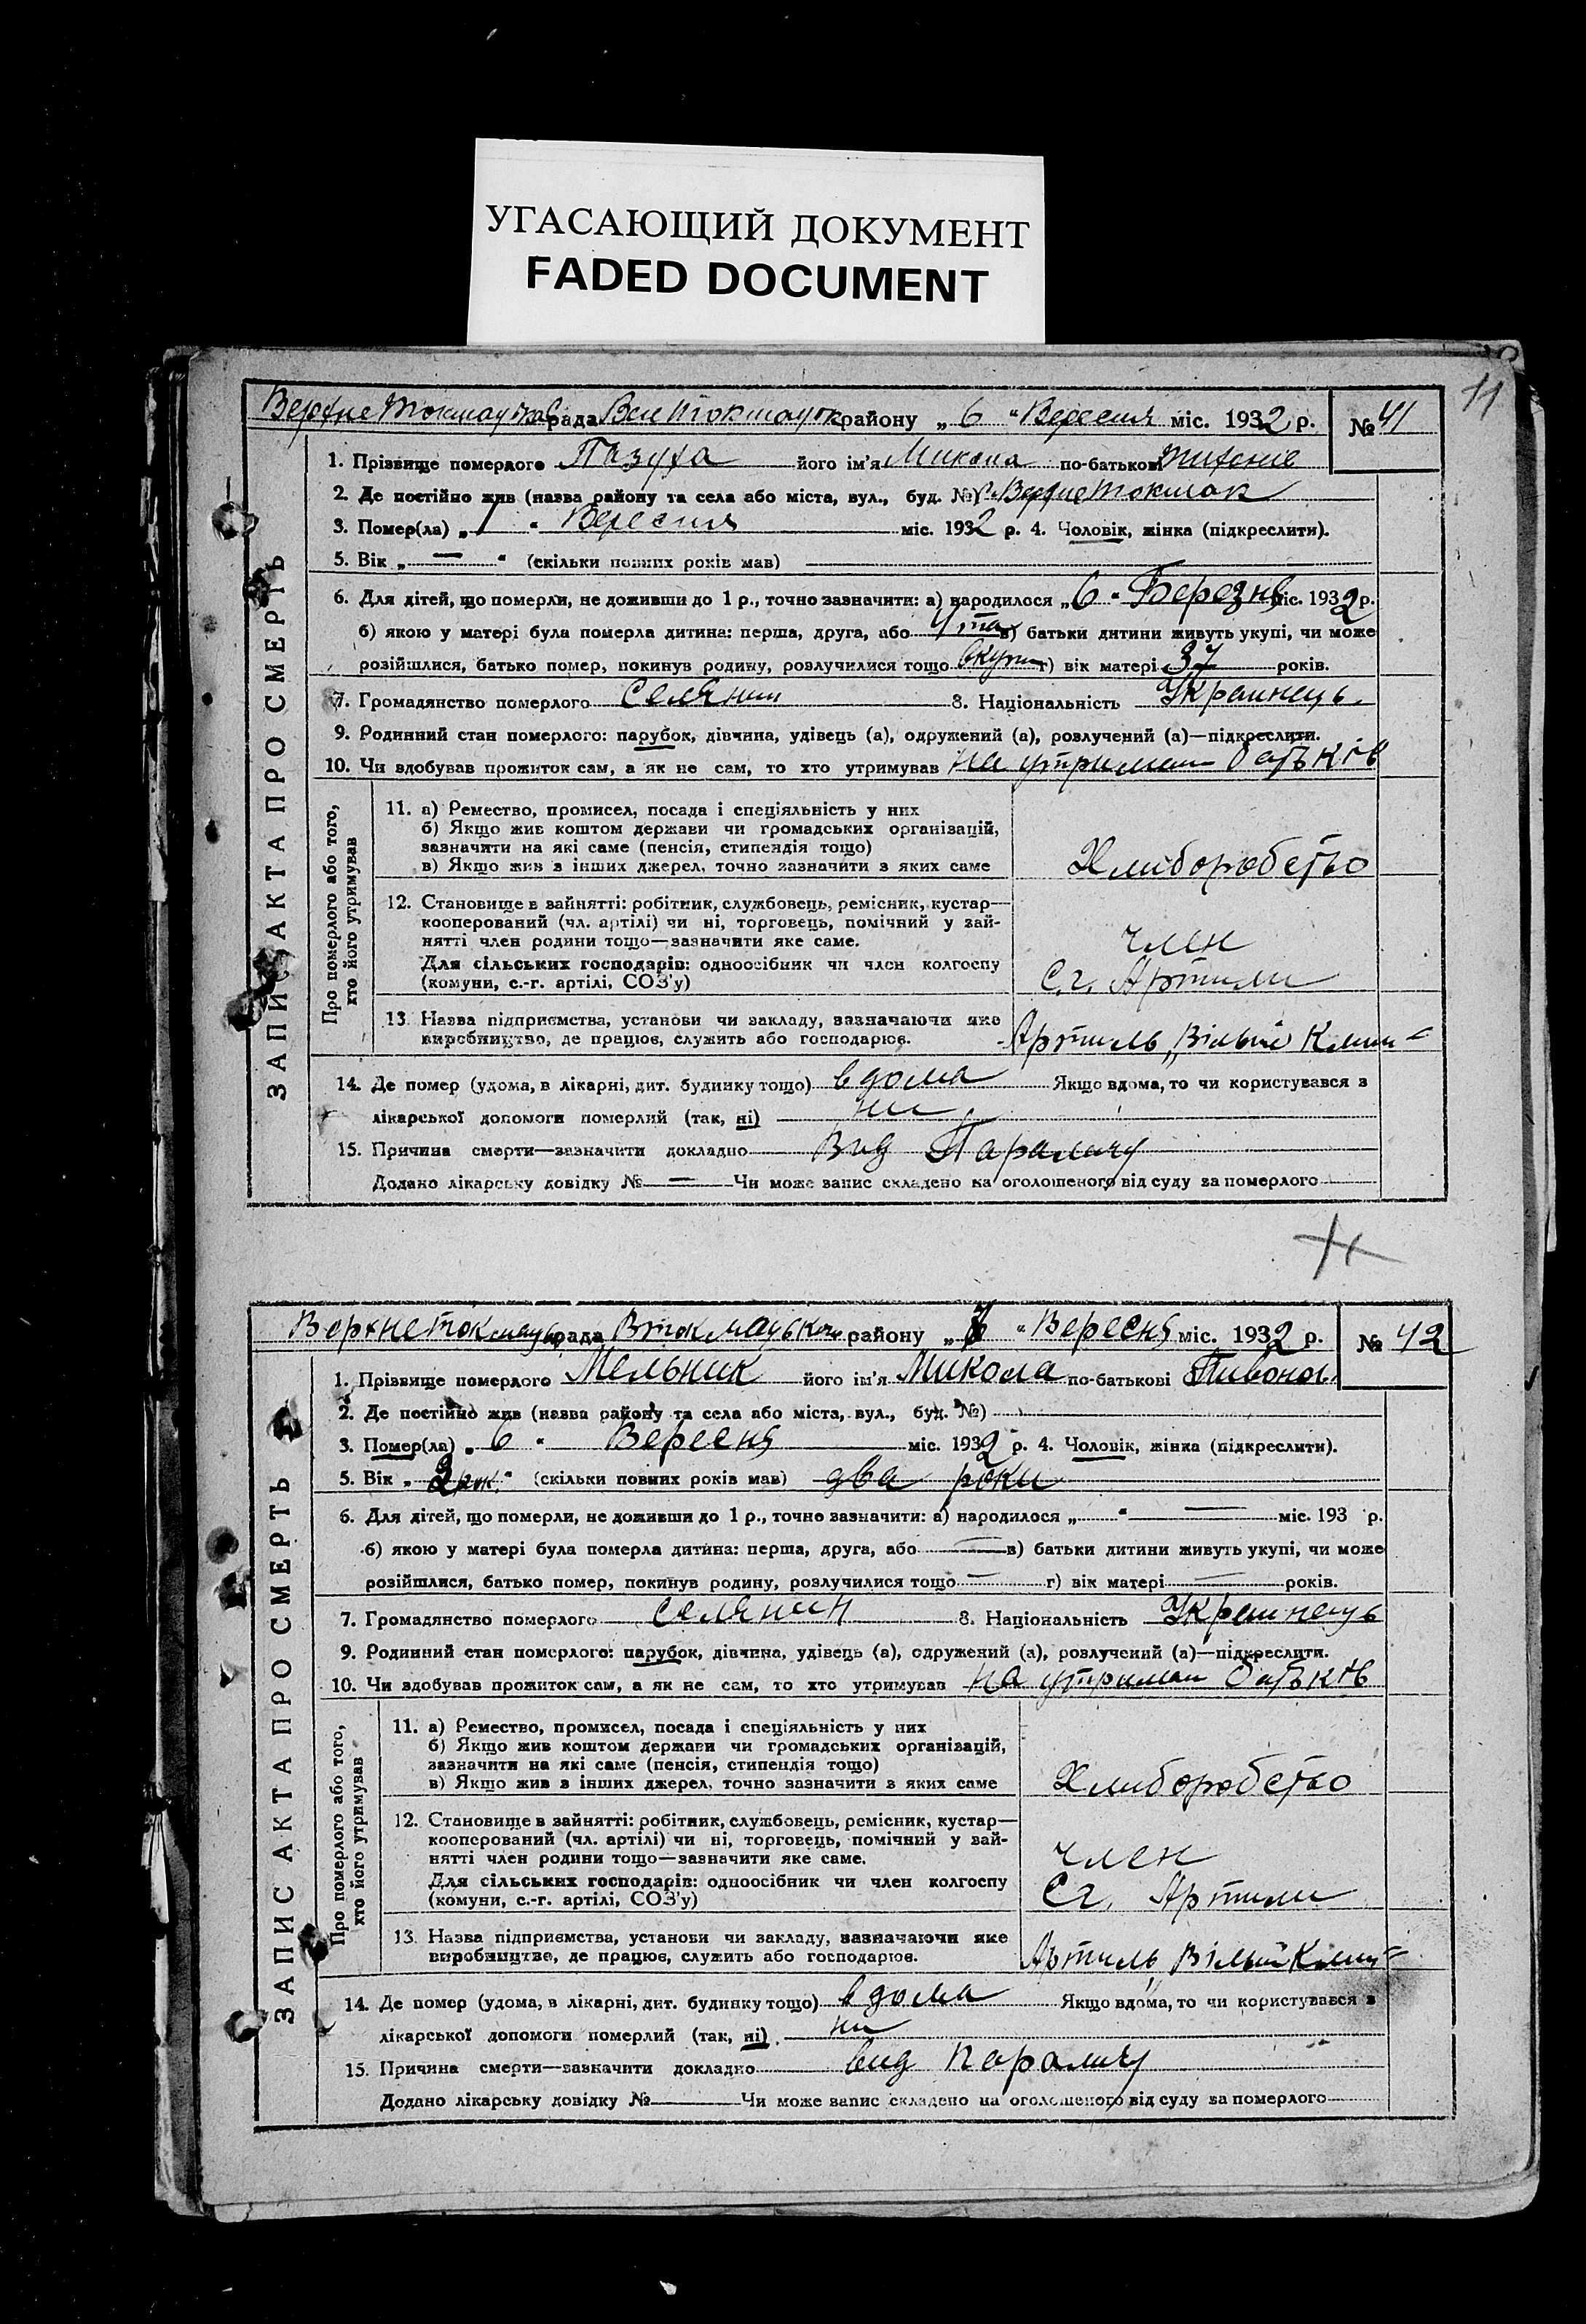 УГАСАЮЩИЙ ДОКУМЕНТ
FADED DOCUMENT
11
ЗАПИС АКТА ПРО СМЕРТЬ
рада Вел Токмацьк району „ 6 “ Вересня міс. 1932 р. № 41
1. Прізвище померлого Пазуха його ім'я Микола по-батькові
2. Де постійно жив (назва району та села або міста, вул., буд. №) с. Верхне Токмак
3. Помер(ла) „ 1 “ Вересня міс. 1932 р. 4. Чоловік, жінка (підкреслити).
5. Вік „ — “ (скільки повних років мав)
6. Для дітей, що померли, не доживши до 1 р., точно зазначити: а) народилося „ 6 “ Березня міс. 1932 р.
б) якою у матері була померла дитина: перша, друга, або 4 та в) батьки дитини живуть укупі, чи може
розійшлися, батько помер, покинув родину, розлучилися тощо вкупи г) вік матері 37 років.
7. Громадянство померлого Селянин 8. Національність Украинець
9. Родинний стан померлого: парубок, дівчина, удівець (а), одружений (а), розлучений (а)—підкреслити.
10. Чи здобував прожиток сам, а як не сам, то хто утримував на утриман батьків
Про померлого або того,
хто його утримував
11. а) Ремество, промисел, посада і спеціяльність у них
б) Якщо жив коштом держави чи громадських організацій,
зазначити на які саме (пенсія, стипендія тощо)
в) Якщо жив з інших джерел, точно зазначити з яких саме
Хлиборобство
12. Становище в зайнятті: робітник, службовець, ремісник, кустар—
кооперований (чл. артілі) чи ні, торговець, помічний у зай-
нятті член родини тощо—зазначити яке саме.
Для сільських господарів: одноосібник чи член колгоспу
(комуни, с.-г. артілі, СОЗ'у)
член
С.г. Артили
13. Назва підприємства, установи чи закладу, зазначаючи яке
виробництво, де працює, служить або господарює.
Артиль „Вільний Клин“
14. Де помер (удома, в лікарні, дит. будинку тощо) вдома Якщо вдома, то чи користувався з
лікарської допомоги померлий (так, ні) ни
15. Причина смерти—зазначити докладно Вид Параличу
Додано лікарську довідку № — Чи може запис складено на оголошеного від суду за померлого
ЗАПИС АКТА ПРО СМЕРТЬ
рада В токмацького району „ 7 “ Вересня міс. 1932 р. № 42
1. Прізвище померлого Мельник його ім'я Микола по-батькові
2. Де постійно жив (назва району та села або міста, вул., буд. №)
3. Помер(ла) „ 6 “ Вересня міс. 1932 р. 4. Чоловік, жінка (підкреслити).
5. Вік „ 2 рок. “ (скільки повних років мав) два роки
6. Для дітей, що померли, не доживши до 1 р., точно зазначити: а) народилося „ “ — міс. 193 р.
б) якою у матері була померла дитина: перша, друга, або — в) батьки дитини живуть укупі, чи може
розійшлися, батько помер, покинув родину, розлучилися тощо — г) вік матері — років.
7. Громадянство померлого Селянин 8. Національність Украинець
9. Родинний стан померлого: парубок, дівчина, удівець (а), одружений (а), розлучений (а)—підкреслити.
10. Чи здобував прожиток сам, а як не сам, то хто утримував на утриман батьків
Про померлого або того,
хто його утримував
11. а) Ремество, промисел, посада і спеціяльність у них
б) Якщо жив коштом держави чи громадських організацій,
зазначити на які саме (пенсія, стипендія тощо)
в) Якщо жив з інших джерел, точно зазначити з яких саме
Хлиборобство
12. Становище в зайнятті: робітник, службовець, ремісник, кустар—
кооперований (чл. артілі) чи ні, торговець, помічний у зай-
нятті член родини тощо—зазначити яке саме.
Для сільських господарів: одноосібник чи член колгоспу
(комуни, с.-г. артілі, СОЗ'у)
член
Сг. Артили
13. Назва підприємства, установи чи закладу, зазначаючи яке
виробництво, де працює, служить або господарює.
Артиль „Вільний Клин“
14. Де помер (удома, в лікарні, дит. будинку тощо) вдома Якщо вдома, то чи користувався з
лікарської допомоги померлий (так, ні) ни
15. Причина смерти—зазначити докладно вид параличу
Додано лікарську довідку № Чи може запис складено на оголошеного від суду за померлого